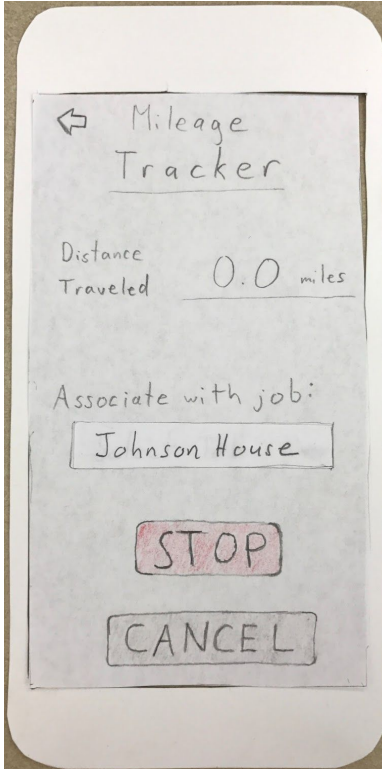 Mileage
Tracker
Distance
Traveled 0.0 miles
Associate with job:
Johnson House
STOP
CANCEL